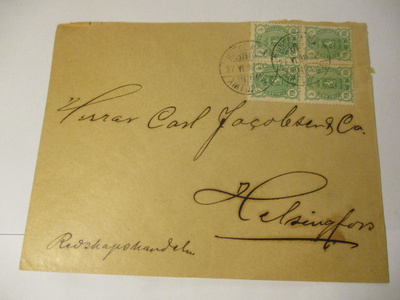 Herrar Carl Jacobsen & Co.
Helsingfors
Redskapshandeln